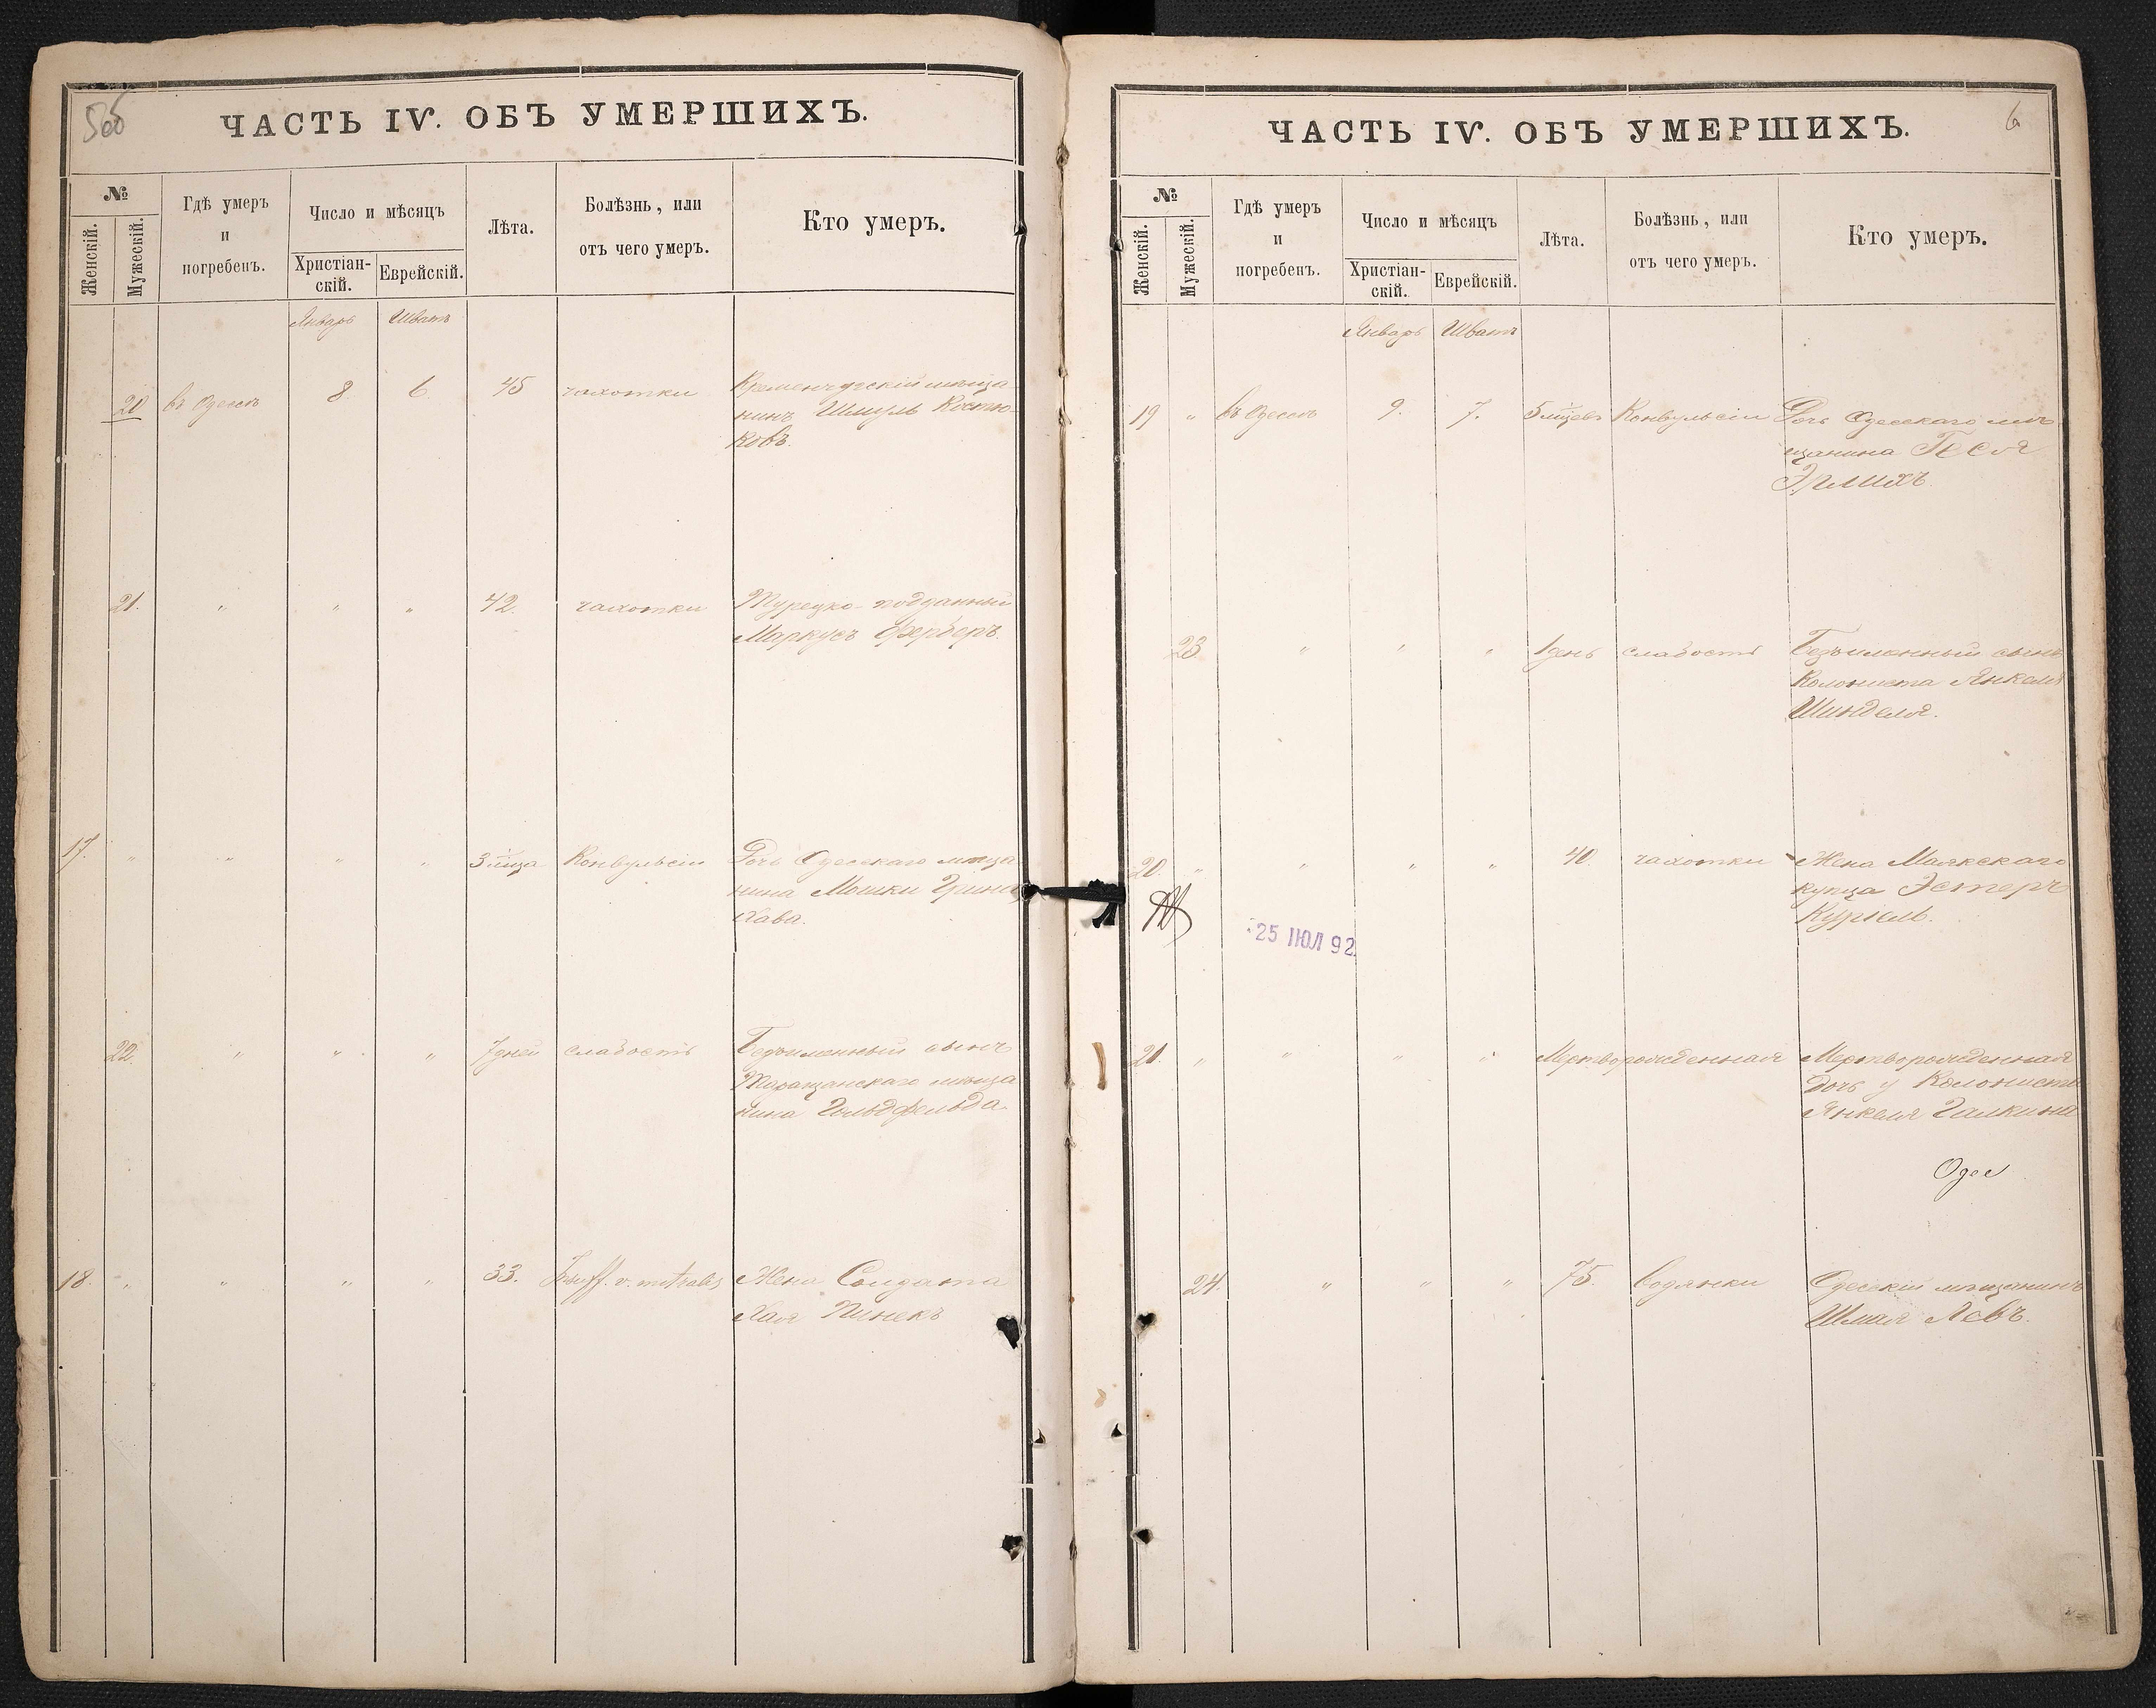 ЧАСТЬ IV. ОБЪ УМЕРШИХЪ.
№
Женскій.
Мужескій.
Гдѣ умеръ
и
погребенъ.
Число и мѣсяцъ
Христіан-
скій.
Еврейскій.
Лѣта.
Болѣзнь, или
отъ чего умеръ.
Кто умеръ.
Январь Шватъ
20 въ Одессѣ 8. 6. 45 чахотки Кременчугскій мѣща-
нинъ Шмуль Костю-
ковъ.
21. " " " 42. чахотки Турецко-подданный
Маркусъ Ферберъ.
17. " " " " 3 м/ца Конвульсіи Дочь Одесскаго мѣща-
нина Мошки Грина
Хава.
22. " " " 7 дней слабость Безъименный сынъ
Таращанскаго мѣща
нина Гольдфельда.
18. " " " " 33. Insuff. v. mitralis Жена Солдата
Хая Пинекъ
ЧАСТЬ IV. ОБЪ УМЕРШИХЪ.
6
№
Женскій.
Мужескій.
Гдѣ умеръ
и
погребенъ.
Число и мѣсяцъ
Христіан-
скій.
Еврейскій.
Лѣта.
Болѣзнь, или
отъ чего умеръ.
Кто умеръ.
Январь Шватъ
19 " въ Одессѣ 9. 7. 5 м/цевъ Конвульсіи Дочь Одесскаго мѣ
щанина Геся
Эрлихъ.
23 " " " 1 день слабость Безъименный сынъ
Колониста Янкеля
Шинделя.
20. " " " " 40. чахотки Жена Маякскаго
купца Эстеръ
25 ІЮЛ 92
21. " " " " Мертворожденная Мертворожденная
дочь у Колониста
Янкеля Галкина
Одес
24. " " " 75. водянки Одесскій мѣщанинъ
Шмая Левъ.